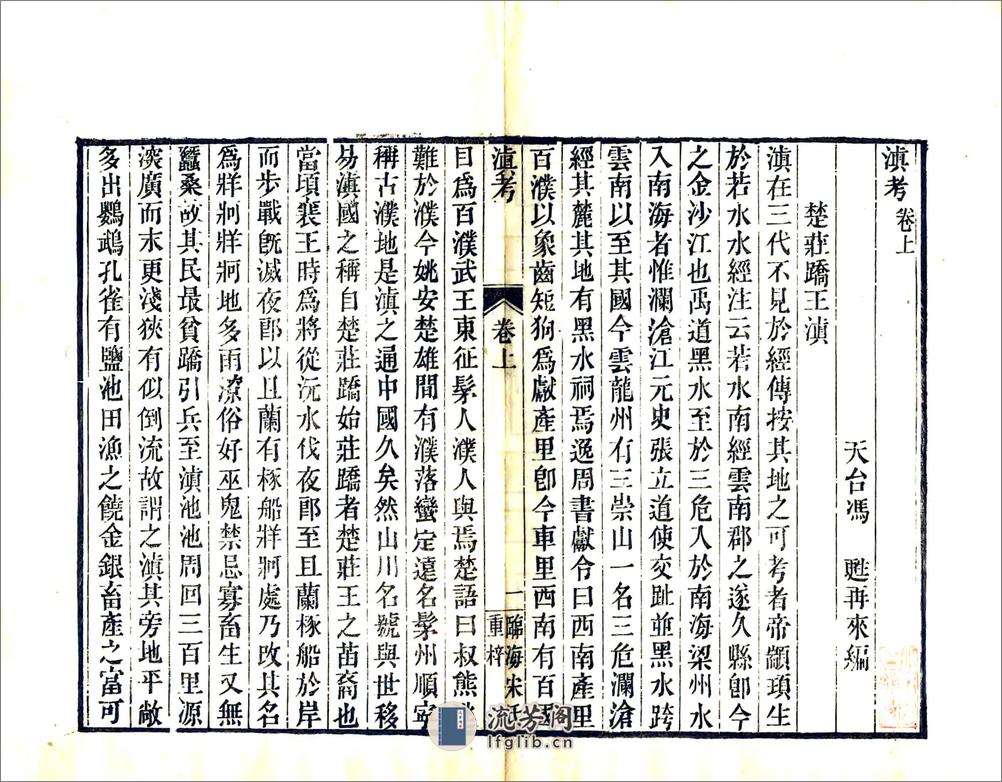 滇考 卷上
天台馮 甦再來編
楚莊蹻王滇
滇在三代不見於經傳按其地之可考者帝顓頊生
於若水水經注云若水南經雲南郡之遂久縣卽今
之金沙江也禹道黑水至於三危入於南海梁州水
入南海者惟瀾滄江元史張立道使交趾並黑水跨
雲南以至其國今雲龍州有三崇山一名三危瀾滄
經其麓其地有黑水祠焉逸周書獻令曰西南產里
百濮以象齒短狗爲獻產里卽今車里西南有百
滇考 卷上 一 臨海宋氏重梓
目爲百濮武王東征髳人濮人與焉楚語曰叔熊
難於濮今姚安楚雄間有濮落蠻定遠名髳州順寧
稱古濮地是滇之通中國久矣然山川名號與世移
易滇國之稱自楚莊蹻始莊蹻者楚莊王之苗裔也
當頃襄王時爲將從沅水伐夜郎至且蘭椓船於岸
而步戰旣滅夜郎以且蘭有椓船牂牁處乃改其名
爲牂牁牂牁地多雨潦俗好巫鬼禁忌寡畜生又無
蠶桑故其民最貧蹻引兵至滇池池周回三百里源
深廣而末更淺狹有似倒流故謂之滇其旁地平敞
多出鸚鵡孔雀有鹽池田漁之饒金銀畜產之富可
流芳閣
lfglib.cn